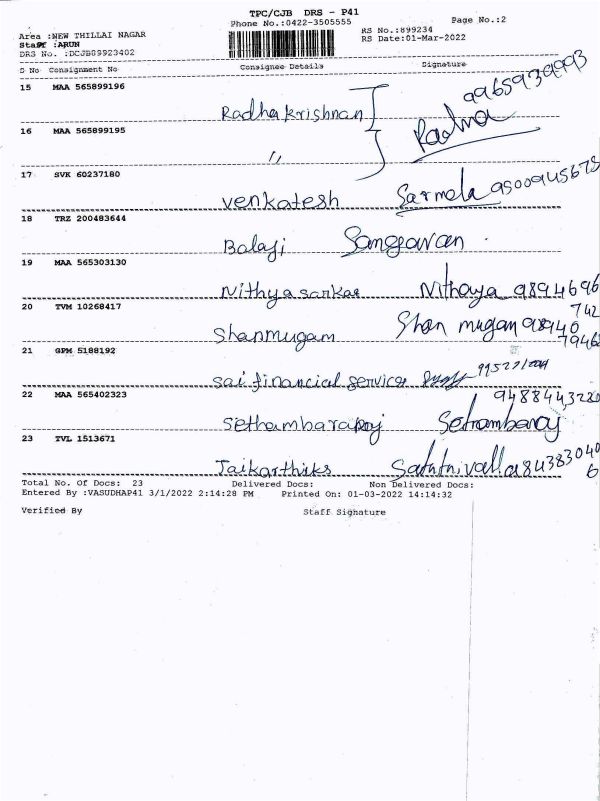 TPC/CJB DRS - P41
Phone No.:0422-3505555 Page No.:2
Area :NEW THILLAI NAGAR RS No.:899234
Staff :ARUN RS Date:01-Mar-2022
DRS No. :DCJB09923402
S No Consignment No Consignee Details Signature
15 MAA 565899196 9965939993
Radha krishnan Radha
16 MAA 565899195
〃
17 SVK 60237180
venkatesh Sarmela
18 TRZ 200483644
Balaji
19 MAA 565303130
Nithyasankar Nithaya 9894696
20 TVM 10268417 742
Shanmugam Shan mugan 98940
21 GPM 5188192 79462
sai financial service
22 MAA 565402323
Sethambararaj
23 TVL 1513671
Jaikarthiks
Total No. Of Docs: 23 Delivered Docs: Non Delivered Docs:
Entered By :VASUDHAP41 3/1/2022 2:14:28 PM Printed On: 01-03-2022 14:14:32
Verified By Staff Signature